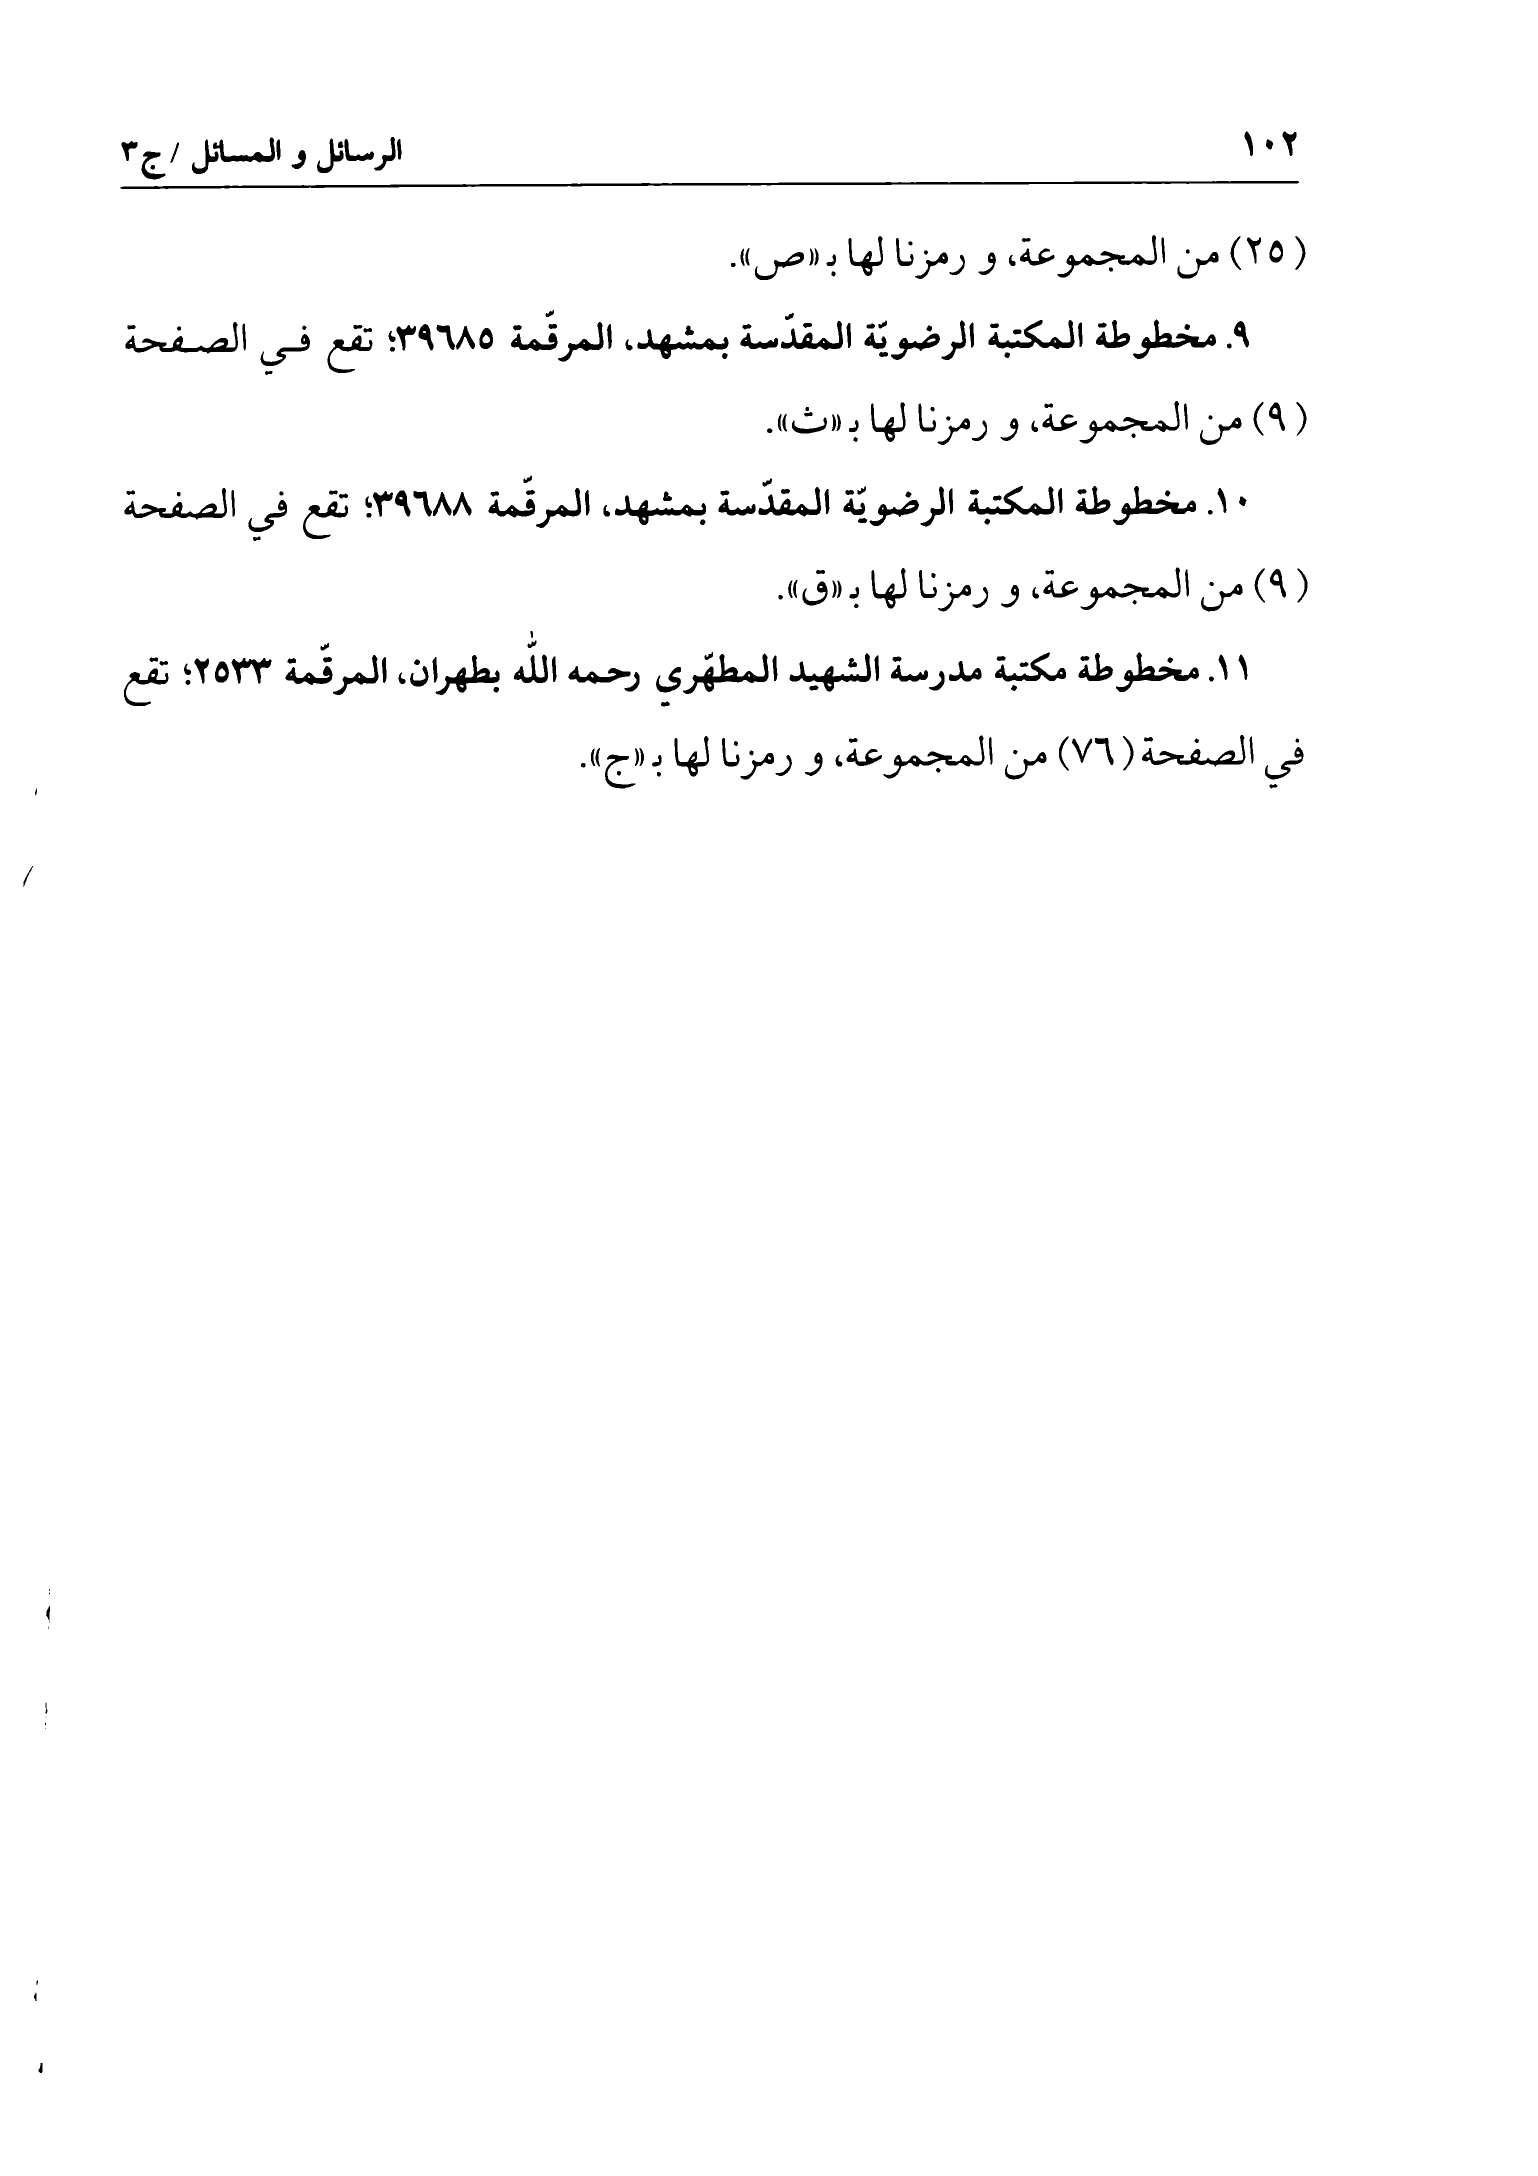 ١٠٢
الرسائل و المسائل / ج٣
(٢٥) من المجموعة، و رمزنا لها بـ «ص».
٩. مخطوطة المكتبة الرضويّة المقدّسة بمشهد، المرقّمة ٣٩٦٨٥؛ تقع فـي الصـفحة
(٩) من المجموعة، و رمزنا لها بـ «ث».
١٠. مخطوطة المكتبة الرضويّة المقدّسة بمشهد، المرقّمة ٣٩٦٨٨؛ تقع في الصفحة
(٩) من المجموعة، و رمزنا لها بـ «ق».
١١. مخطوطة مكتبة مدرسة الشهيد المطهّري رحمه اللّٰه بطهران، المرقّمة ٢٥٣٣؛ تقع
في الصفحة (٧٦) من المجموعة، و رمزنا لها بـ «ج».